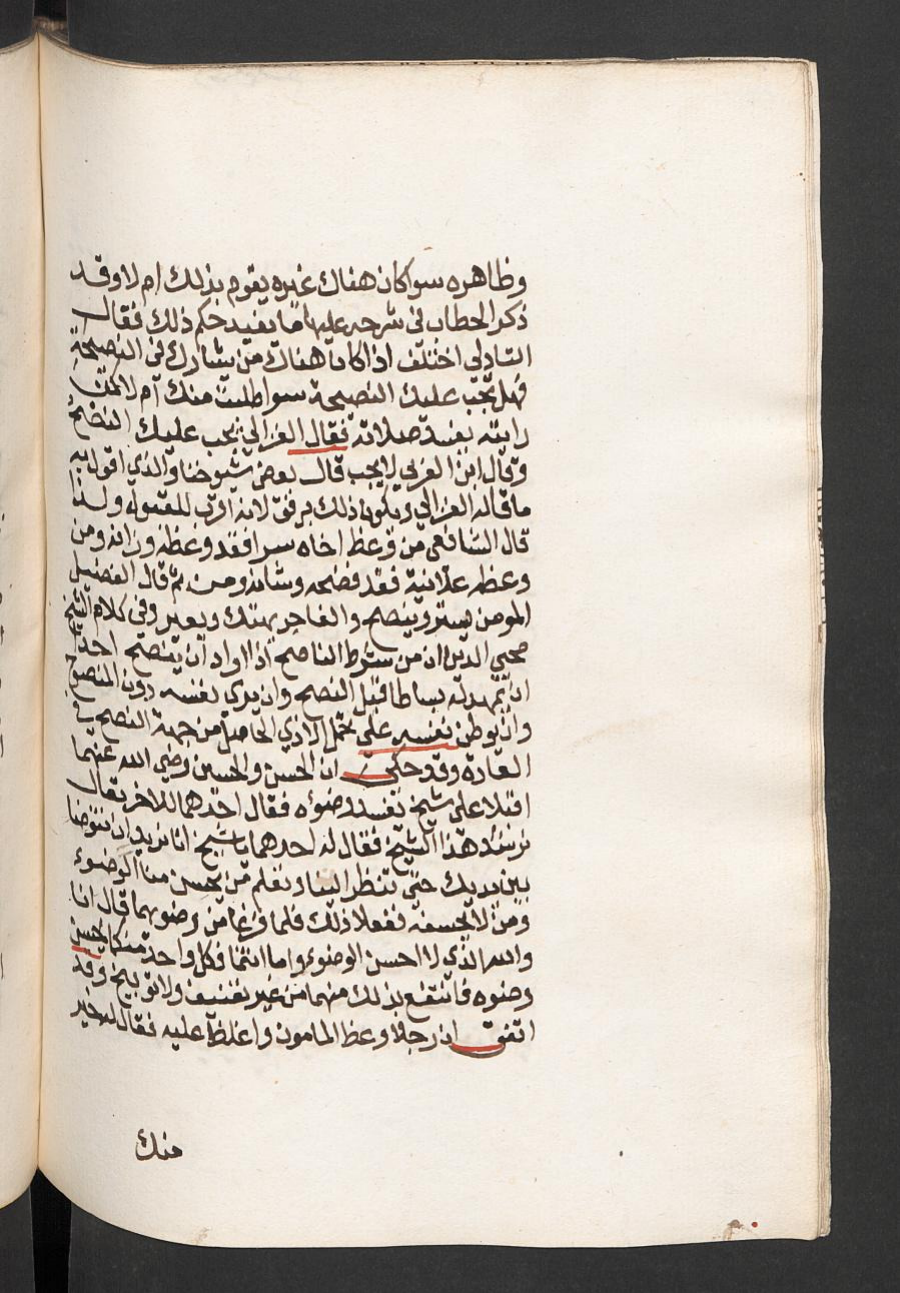 وظاهره سوا كان هناك غيره يقوم بذلك ام لا وقد
ذكر الحطاب فى شرحه عليها ما يفيد حكم ذلك فقال
التادلى اختلف اذا كان هناك من يشارك فى النصيحة
فهل تجب عليك النصيحة سوا طلبت منك ام لا كمن
رايته يفسد صلاته فقال الغزالي يجب عليك النصح
وقال ابن العربي لا يجب قال بعض شيوخنا والذي اقول به
ما قاله الغزالي ويكون ذلك برفق لانه اقرب للقبول ولذا
قال الشافعي من وعظ اخاه سرا فقد وعظه وزانه ومن
وعظه علانية فقد فضحه وشانه ومن ثم قال الفضيل
المومن يستر وينصح والفاجر يهتك ويعير وفى كلام الشيخ
محيي الدين ان من شرط الناصح اذا اراد ان ينصح احدا
ان يمهد له بساطا قبل النصح وان يري نفسه دون المنصوح
وان يوطن نفسه على تحمل الاذي الحاصل من جهة النصح في
العادة وقد حكى ان الحسن والحسين رضي الله عنهما
اقبلا على شيخ يفسد وضوءه فقال احدهما للاخر تعال
نرشد هذا الشيخ فقال له احدهما يا شيخ انا نريد ان نتوضا
بين يديك حتى تنظر الينا وتعلم من يحسن منا الوضوء
ومن لا يحسنه ففعلا ذلك فلما فرغا من وضوئهما قال انا
والله الذي لا احسن الوضوء واما انتما فكل واحد منكما يحسن
وضوه فانتفع بذلك منهما من غير تعنيف ولا توبيخ وقد
اتفق ان رجلا وعظ المامون واغلظ عليه فقال له خير
منك